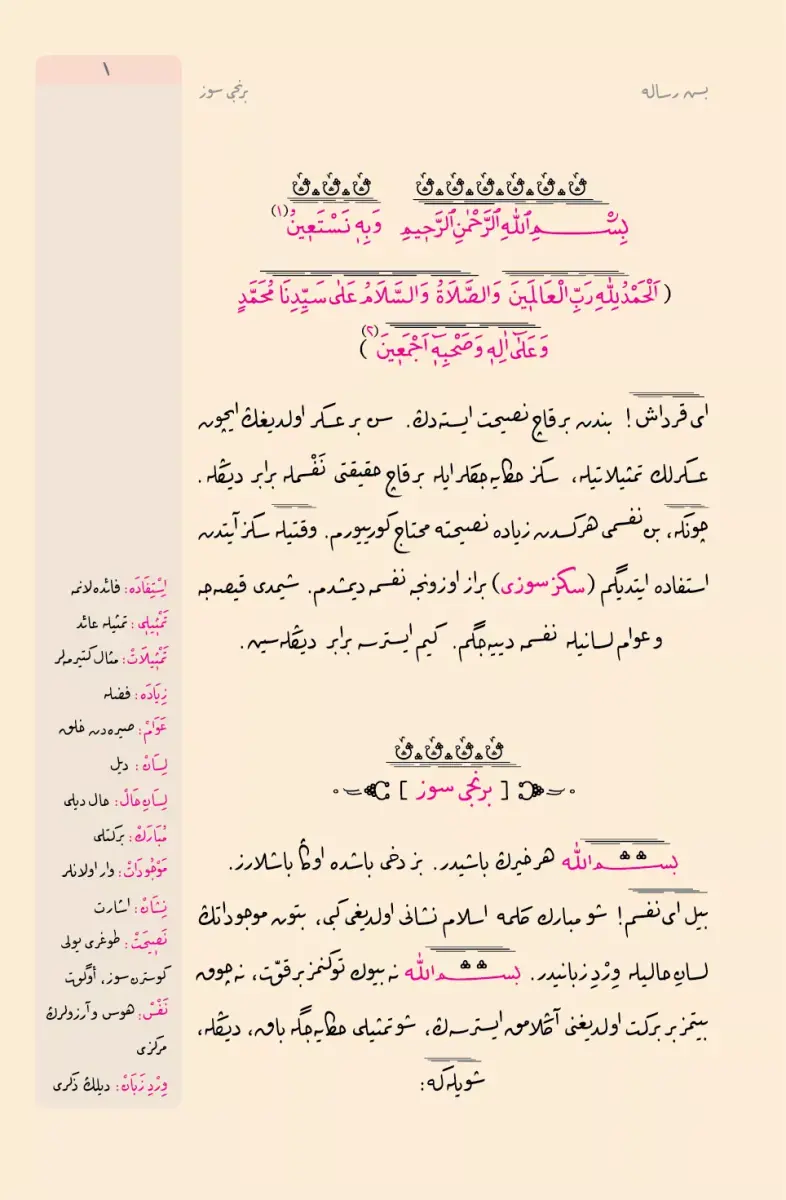 بش رساله
برنجی سوز
١
بِسْمِ اللّٰهِ الرَّحْمٰنِ الرَّحِيمِ وَبِهٖ نَسْتَعٖينُ (١)
( اَلْحَمْدُ لِلّٰهِ رَبِّ الْعَالَمٖينَ وَالصَّلَاةُ وَالسَّلَامُ عَلٰى سَيِّدِنَا مُحَمَّدٍ
وَعَلٰٓى اٰلِهٖ وَصَحْبِهٖٓ اَجْمَعٖينَ (٢) )
ای قرداش! بندن برقاچ نصیحت ایسته‌دڭ. سن بر عسکر اولدیغڭ ایچون
عسکرلك تمثیلاتیله، سکز حکایه‌جکلر ایله برقاچ حقیقتی نَفْسمله برابر دیڭله.
چونکه، بن نفسمی هرکسدن زیاده نصیحته محتاج کورییورم. وقتیله سکز آیتدن
استفاده ایتدیگم (سکز سوزی) براز اوزونجه نفسمه دیمشدم. شیمدی قیصه‌جه
و عوام لسانیله نفسمه دییه‌جگم. کیم ایسترسه برابر دیڭله‌سین.
[ برنجی سوز ]
بســم اللّٰه هر خیرڭ باشیدر. بز دخی باشده اوڭا باشلارز.
بیل ای نفسم! شو مبارك کلمه اسلام نشانی اولدیغی کبی، بتون موجوداتڭ
لسانِ حالیله وِردِ زبانیدر. بســم اللّٰه نه بیوك توکنمز بر قوّت، نه چوق
بیتمز بر برکت اولدیغنی آڭلامق ایسترسه‌ڭ، شو تمثیلی حکایه‌جگه باق، دیڭله،
شویله که:
اِسْتِفَادَه: فائده‌لانمه
تَمْثٖيلٖى: تمثیله عائد
تَمْثٖيلَاتْ: مثال کتیرمه‌لر
زِيَادَه: فضله
عَوَامْ: صیره‌دن خلق
لِسَانْ: دیل
لِسَانِ حَالْ: حال دیلی
مُبَارَكْ: برکتلی
مَوْجُودَاتْ: وار اولانلر
نِشَانْ: اشارت
نَصٖيحَتْ: طوغری یولی
کوسترن سوز، أوگوت
نَفْسْ: هوس و آرزولرڭ
مرکزی
وِرْدِ زَبَانْ: دیلڭ ذکری